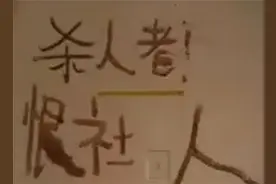 杀人者!
恨社 人